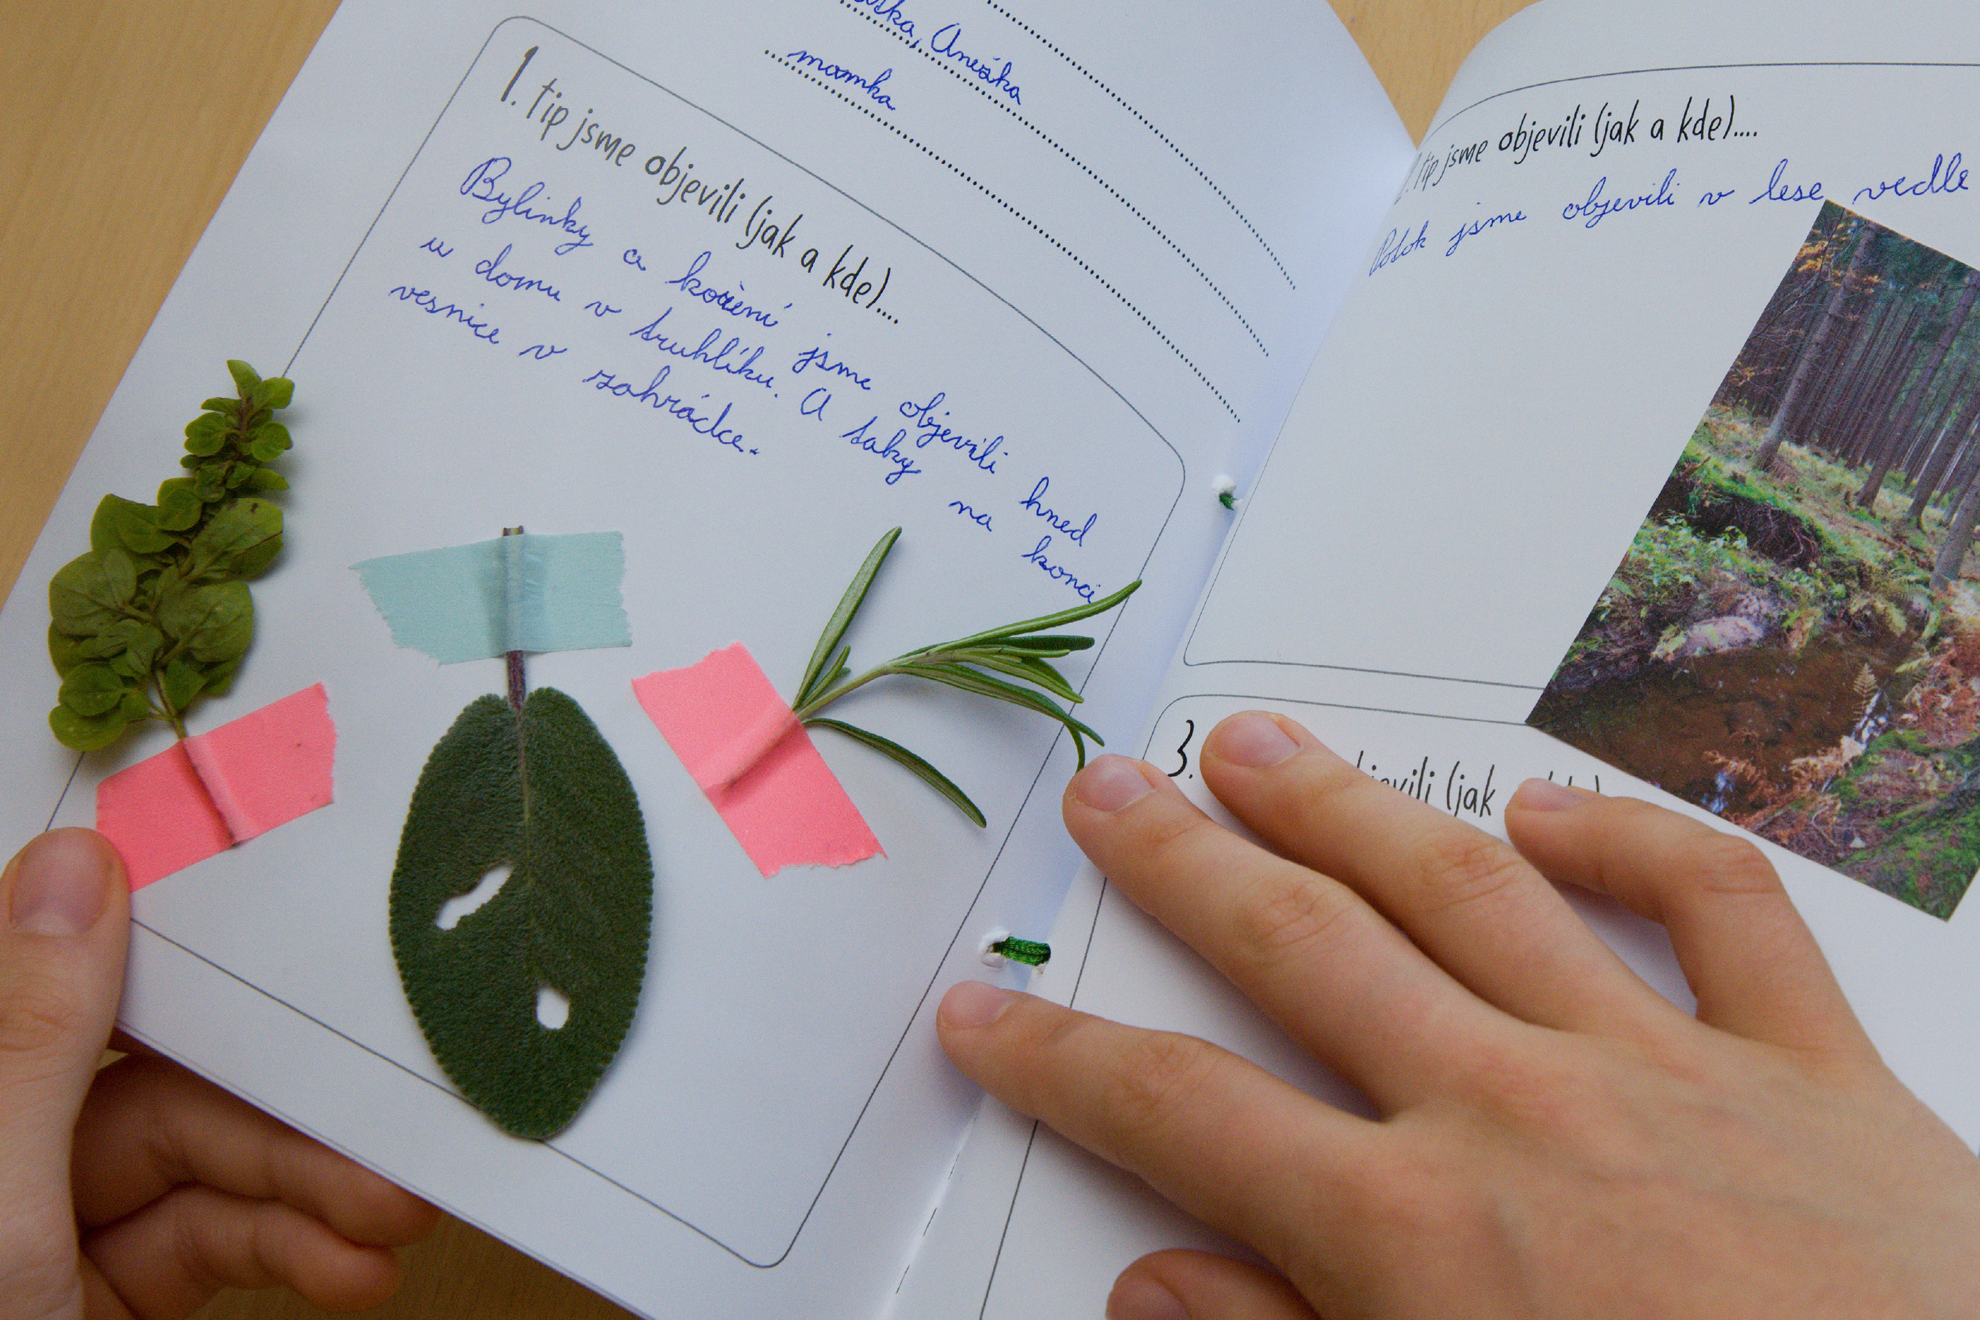 Anežka
mamka
1. tip jsme objevili (jak a kde)....
Bylinky a koření jsme objevili hned
u domu v truhlíku. A taky na konci
vesnice v zahrádce.
tip jsme objevili (jak a kde)....
Potok jsme objevili v lese vedle
3. (jak